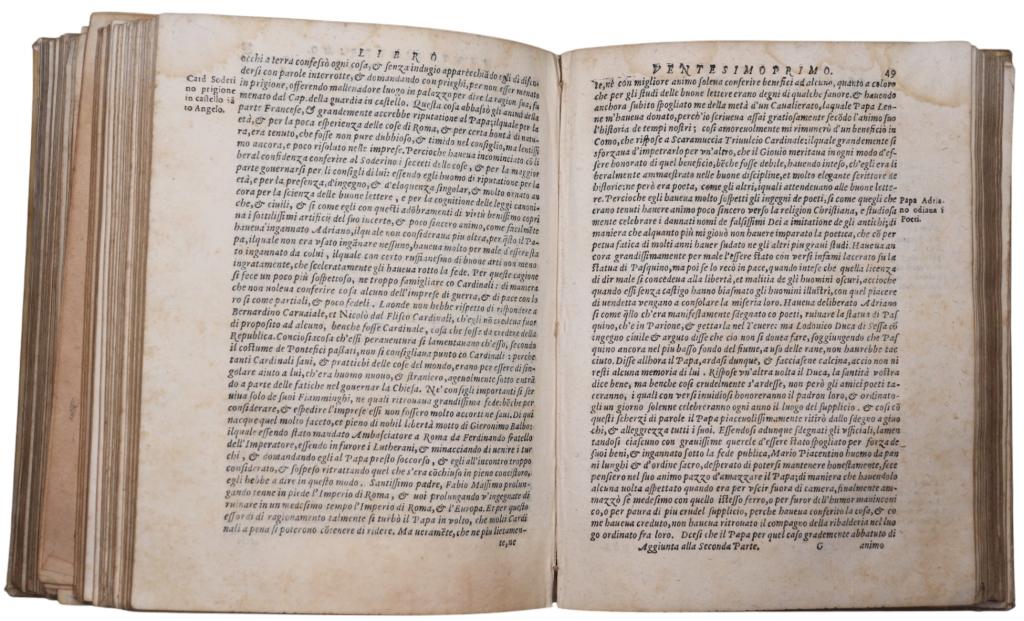 LIBRO
occhi a terra confessò ogni cosa, & senza indugio apparecchiãdo egli di difen
dersi con parole interrotte, & domandando con prieghi, per non esser menato
in prigione, offerendo malleuadore luogo in palazzo per dire la ragion sua, fu
menato dal Cap. della guardia in castello. Questa cosa abbassò gli animi della
parte Francese, & grandemente accrebbe riputatione al Papa; ilquale per la
età, & per la poca esperienza delle cose di Roma, & per certa bontà di natu-
ra, era tenuto, che fosse non pure dubbioso, & timido nel consiglio, ma lentissi
mo ancora, e poco risoluto nelle imprese. Percioche haueua incominciato cõ li
beral confidenza conferire al Soderino i secreti delle cose, & per la maggior
parte gouernarsi per li consigli di lui: essendo egli huomo di riputatione per la
età, e per la presenza, d'ingegno, & d'eloquenza singolar, & molto ornato an
cora per la scienza delle buone lettere, e per la cognitione delle leggi canoni-
che, & ciuili, & si come egli con questi adobbamenti di virtù benissimo copri
ua i sottilissimi artificij del suo incerto, & poco sincero animo, come facilmẽte
haueua ingannato Adriano, ilquale non consideraua piu altra, per q̃sto il Pa-
pa, ilquale non era vsato ingãnare nessuno, haueua molto per male d'essere sta
to ingannato da colui, ilquale con certo ruffianesimo di buone arti non meno
ingratamente, che sceleratamente gli haueua rotto la fede. Per queste cagione
si fece un poco piu sospettoso, ne troppo famigliare co Cardinali: di maniera
che non uoleua conferire cosa alcuna dell'imprese di guerra, & di pace con lo
ro si come partiali, & poco fedeli. Laonde non hebbe rispetto di rispondere a
Bernardino Caruaiale, et Nicolò dal Flisco Cardinali, ch'egli nõ credeua fuor
di proposito ad alcuno, benche fosse Cardinale, cosa che fosse da credere della
Republica. Conciosiacosa ch'essi perauentura si lamentauano ch'esso, secondo
il costume de Pontefici passati, non si consigliaua punto co Cardinali: perche
tanti Cardinali saui, & prattichi delle cose del mondo, erano per essere di sin-
golare aiuto a lui, ch'era huomo nuouo, & straniero, ageuolmente sotto entrã
do a parte delle fatiche nel gouernar la Chiesa. Ne' consigli importanti si ser
uiua solo de suoi Fiamminghi, ne quali ritrouaua grandissima fede: bẽche per
considerare, & espedire l'imprese essi non fossero molto accorti ne saui. Di qui
nacque quel molto faceto, et pieno di nobil libertà motto di Gieronimo Balbo:
ilquale essendo stato mandato Ambasciatore a Roma da Ferdinando fratello
dell'Imperatore, essendo in furore i Lutherani, & minacciando di uenire i tur
chi, & domandando egli al Papa presto soccorso, & egli all'incontro troppo
considerato, & sospeso ritrattando quel che s'era cõchiuso in pieno concistoro,
egli hebbe a dire in questo modo. Santissimo padre, Fabio Massimo prolun-
gando tenne in piede l'Imperio di Roma, & uoi prolungando v'ingegnate di
ruinare in un medesimo tempo l'Imperio di Roma, & l'Europa. Et per questo
essordi di ragionamento talmente si turbò il Papa in volto, che molti Cardi
nali a pena si poterono cõtenere di ridere. Ma ueramẽte, che ne piu lietamen-
te, ne
Card Soderi
no prigione
in castello sã
to Angelo.
VENTESIMOPRIMO. 49
te, nè con migliore animo soleua conferire benefici ad alcuno, quanto a coloro
che per gli studi delle buone lettere erano degni di qualche fauore. & hauendo
anchora subito spogliato me della metà d'un Caualierato, laquale Papa Leo-
ne m'haueua donato, perch'io scriueua assai gratiosamente secõdo l'animo suo
l'historia de tempi nostri; così amoreuolmente mi rimunerò d'un beneficio in
Como, che rispose a Scaramuccia Triuulcio Cardinale: ilquale grandemente si
sforzaua d'impetrarlo per vn'altro, che il Giouio meritaua in ogni modo d'es-
sere honorato di quel beneficio, bẽche fosse debile, hauendo inteso, ch'egli era li
beralmente ammaestrato nelle buone discipline, et molto elegante scrittore de
historie: ne però era poeta, come gli altri, iquali attendeuano alle buone lette-
re. Percioche egli haueua molto sospetti gli ingegni de poeti, si come quegli che
erano tenuti hauere animo poco sincero verso la religion Christiana, e studiosa
mente celebrare i dannati nomi de falsissimi Dei a imitatione de gli antichi; di
maniera che alquanto più mi giouò non hauere imparato la poetica, che cõ per
petua fatica di molti anni hauer sudato ne gli altri piu graui studi. Haueua an
cora grandissimamente per male l'essere stato con versi infami lacerato su la
statua di Pasquino, ma poi se lo recò in pace, quando intese che quella licenza
di dir male si concedeua alla libertà, et malitia de gli huomini oscuri, accioche
quando essi senza castigo hanno biasmato gli huomini illustri, con quel piacere
di uendetta vengano a consolare la miseria loro. Haueua deliberato Adriano
si come q̃llo ch'era manifestamente sdegnato co poeti, ruinare la statua di Pas
quino, ch'è in Parione, & gettarla nel Teuere: ma Lodouico Duca di Sessa cõ
ingegno ciuile & arguto disse che cio non si douea fare, soggiungendo che Pas
quino ancora nel piu basso fondo del fiume, a uso delle rane, non haurebbe tac
ciuto. Disse allhora il Papa, ardasi dunque, & facciasene calcina, accio non ni
resti alcuna memoria di lui. Rispose vn'altra uolta il Duca, la santità vostra
dice bene, ma benche così crudelmente s'ardesse, non però gli amici poeti ta-
ceranno; i quali con versi inuidiosi honoreranno il padron loro, & ordinato-
gli un giorno solenne celebreranno ogni anno il luogo del supplicio. & così cõ
questi scherzi di parole il Papa piaceuolissimamente ritirò dallo sdegno a giuo
chi, & allegrezza tutti i suoi. Essendosi adunque sdegnati gli vsiciali, lamen
tandosi ciascuno con grauissime querele d'essere stato spogliato per forza de
suoi beni, & ingannato sotto la fede publica, Mario Piacentino huomo da pan
ni lunghi & d'ordine sacro, desperato di potersi mantenere honestamente, fece
pensiero nel suo animo pazzo d'amazzare il Papa; di maniera che hauendolo
alcuna uolta aspettato quando era per vscir fuora di camera, finalmente am-
mazzò se medesimo con quello istesso ferro, o per furor dell'humor maninconi
co, o per paura di piu crudel supplicio, perche haueua conferito la cosa, & co
me haueua creduto, non haueua ritrouato il compagno della ribalderia nel luo
go ordinato fra loro. Dcesi che il Papa per quel caso grademente abbattuto di
Aggiunta alla Seconda Parte. G animo
Papa Adria-
no odiaua i
Poeti.